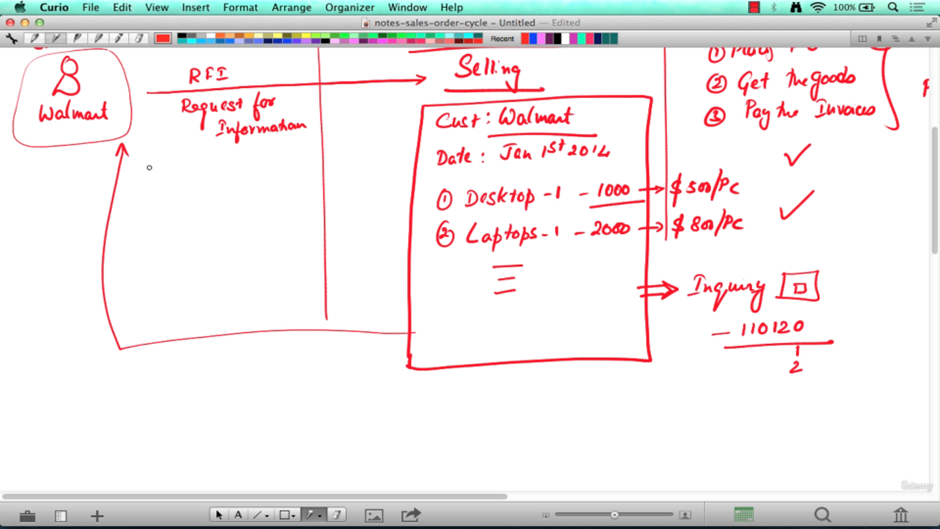 Curio File Edit View Insert Format Arrange Organizer Window Help 100%
notes-sales-order-cycle - Untitled — Edited
Recent
RFI
Request for
Information
Walmart
Selling
Cust: Walmart
Date: Jan 1st 2014
① Desktop-1 - 1000 → $500/PC
② Laptops-1 - 2000 → $800/PC
②  Get the goods
③ Pay the Invoices
Inquiry
- 110120
1
2
Udemy